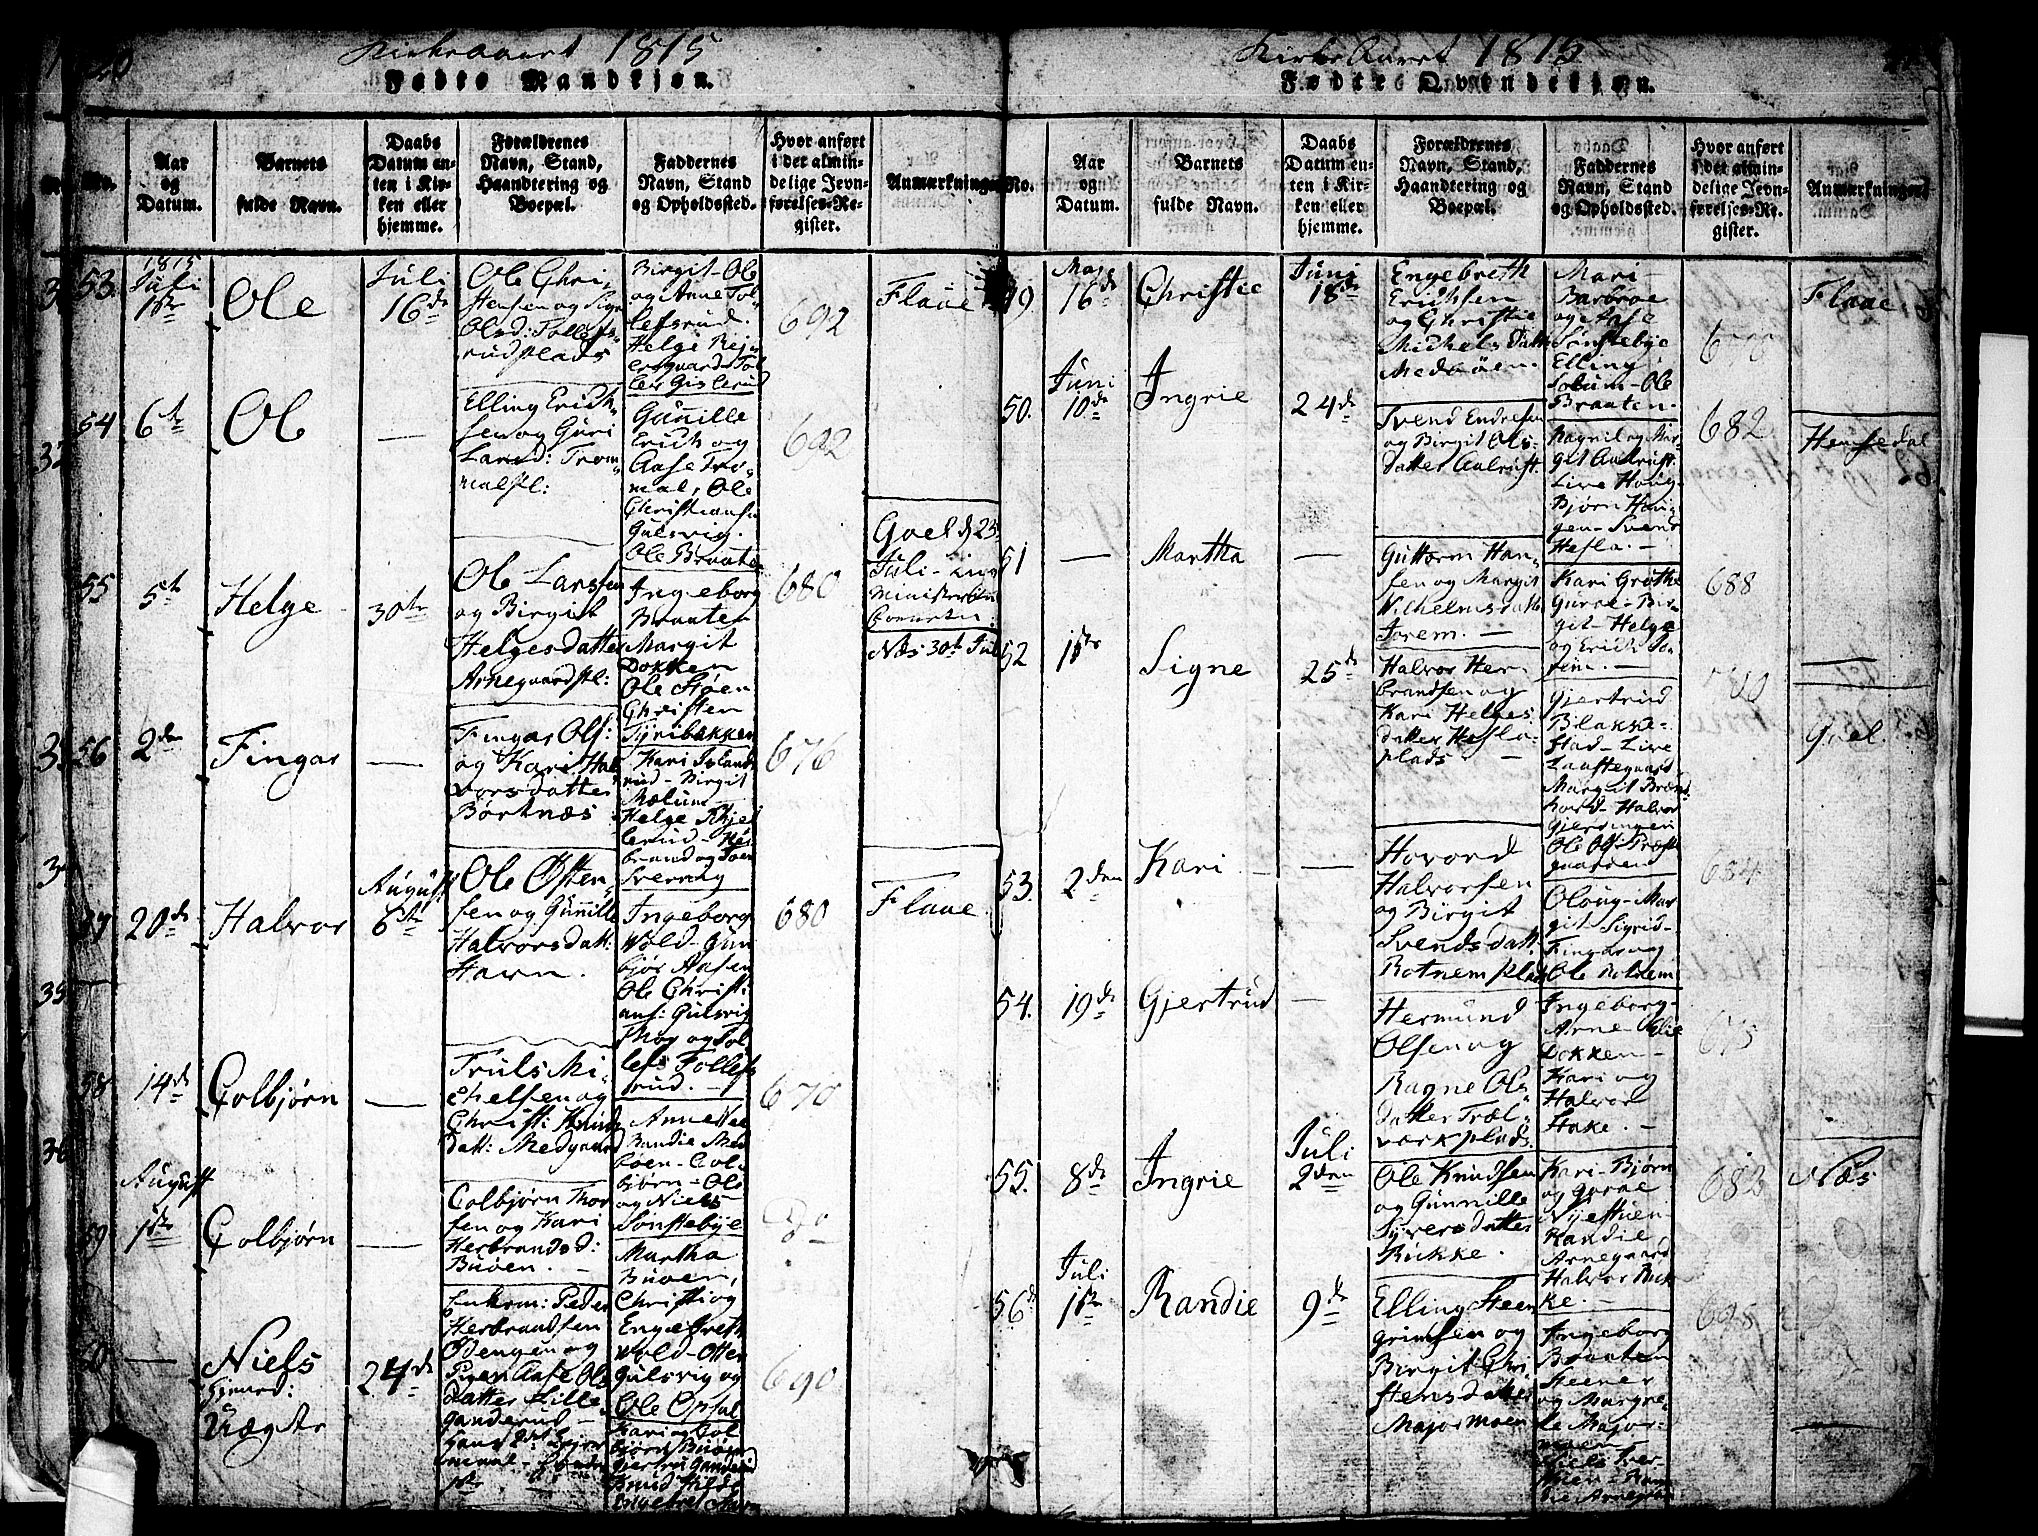 20
Kirke Aaret 1815
Fødte Mandkjøn.
No.
Aar
og
Datum.
Barnets
fulde Navn.
Daabs
Datum en-
ten i Kir-
ken eller
hjemme.
Forældrenes
Navn, Stand,
Haandtering og
Boepæl.
Faddernes
Navn, Stand
og Opholdssted.
Hvor anført
i det almin-
delige Jevn-
førelses-Re-
gister.
Anmærkninger
53.
1815
Juli
1ste
Ole
Juli
16de
Ole Chri-
stensen og Sigr
Olsd: Tollefs-
rudplads
Birgit - Ole
og Anne Tol-
lefsrud.
Helge Rej-
ersgaard - Tol-
lef Gislerud
692
Flaae
54
6te
Ole
—
Elling Erich-
sen og Guri
Larsd: Trom-
maldsl:
Gunille
Erich og
Aase Tro-
mal, Ole
Christiansen
Gulsvig.
Ole Braaten
692
Goel d 23
Juli
55
5te
Helge
30te
Ole Larssen
og Birgit
Helgesdatter
Arnegaardsl:
Ingeborg
Braaten
Margit
Dokken
Ole Støen
Christen
Tyribakken
680
Næs 30te Juli
56
2den
Fingar
—
Fingar Ols:
og Kari Hal-
vorsdatter
Børtnæs
Kari
rud - Birgit
Mælum
Helge Kje-
lerud
brand og Joen
Svenny
676
57
20de
Halvor
August
6te
Ole Østen-
sen og Gunnille
Halvorsdatt:
Havn.
Ingeborg
Wold - Gun-
bjør Aasen
Ole Christi-
ans: Gulsvig
Thor og Tol-
lefs Tollefs-
rud. —
680
Flaae
58
14de
Colbjørn
—
Truls Mi-
chelsen og
Christi: Knud
Datt: Medgaard
Anne
Randie Med-
øen - Col-
bjørn - Ole
og Niels
Sønstebye
670
59
August
1ste
Colbjørn
—
Colbjørn Thor-
sen og Kari
Herbrandsd:
Buøen. —
Martha
Buøen,
Christi og
Engebreth
Wold - Otten
Gulsvig og
Ole Opsal
do
60
—
Niels
Uægte
24de
Peder
Herbrandsen
Ødengen og
Pigen Aase Ols
Datter Lille-
ganderud —
Kari og Col-
bjørn Buøen
Knud
690
Kirke Aaret 1815
Fødte Qvindekjøn.
No.
Aar
og
Datum.
Barnets
fulde Navn.
Daabs
Datum en-
ten i Kir-
ken eller
hjemme.
Forældrenes
Navn, Stand,
Haandtering og
Boepæl.
Faddernes
Navn, Stand
og Opholdssted.
Hvor anført
i det almin-
delige Jevn-
førelses-Re-
gister.
Anmærkninger
49.
Maje
16de
Christie
Juni
18de
Engebreth
Erichsen
og Christie
Michels Datter
Medøen.
Mari -
Barbroe
og Aase
Sønstebye
Elling
Solum - Ole
Braaten.
Flaae
50.
Juni
10de
Ingrie
24de
Svend Endresen
og Birgit Ols-
datter Aalrust.
Ragnil og Mar-
git Aalrust.
Live Houg-
Bjørn Houg-
gen - Svend
Hefla. —
682
Hemsedal
51
—
Martha
—
Guttorm Han-
sen og Margit
Wilhelmsdatter
Jorem. —
Kari Grøthe
Guroe - Bir-
git - Helge
og Erich
688
52
15de
Signe
25de
Halvor Her-
brandsen og
Kari Helges-
datter Hefla-
plads —
Gjertrud
Blakke-
stad - Live
Lauftegaard
Margit Brænd-
hord - Halvor
Gjerdingen
Ole Ols:
gaarden
Goel
53.
2den
Kari
—
Hovord
Halvorsen
og Birgit
Svendsdatt:
Rotnem plads
Oloug - Mar-
git Sigrid -
Fingar og
Ole Rotnem
684
54.
19de
Gjertrud
—
Hermund
Olsen og
Ragne Ols-
datter Træl-
varkplads.
Ingeborg -
Arne - Ole
Dokken -
Kari og
Halvor
Hake. —
675
55.
8de
Ingrie
Juli
2den
Ole Knudsen
og Gunnille
Syversdatter
Rukke.
Kari - Bjørn
og Guroe
Nyestuen -
Randie
Arnegaard
Halvor Ruk-
ke. —
682
Næs
56
Juli
1ste
Randie
9de
Elling Steen-
grimsen og
Birgit Chri-
stensdatter
Majormoen
Ingeborg
Braaten
Steener
og Margre-
te Major-
moen
Niels
695